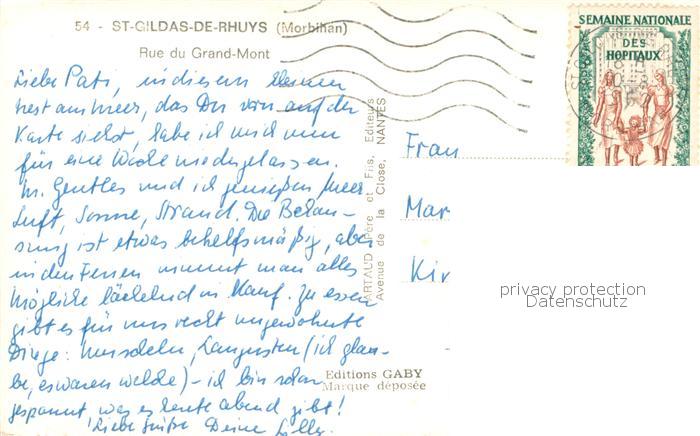 54 - ST-GILDAS-DE-RHUYS (Morbihan)
Rue du Grand-Mont
SEMAINE NATIONALE
DES
HÔPITAUX
Liebe Pati, in diesem kleinen
Nest am Meer, das Du vorn auf der
Karte siehst, habe ich mich nun
für eine Woche niedergelassen.
M. Gentles und ich genießen Meer,
Luft, Sonne, Strand. Die Behau-
sung ist etwas behelfsmäßig, aber
in den Ferien nimmt man alles
Mögliche lächelnd in Kauf. Zu essen
gibt es für uns recht ungewohnte
Dinge: Muscheln, Langusten (ich glau-
be, es waren welche) - ich bin schon
gespannt, was es heute abend gibt!
Liebe Grüße Deine
ARTAUD Père et Fils, Editeurs
Avenue de la Close, NANTES
Frau
Mar
Kir
privacy protection
Datenschutz
Editions GABY
Marque déposée